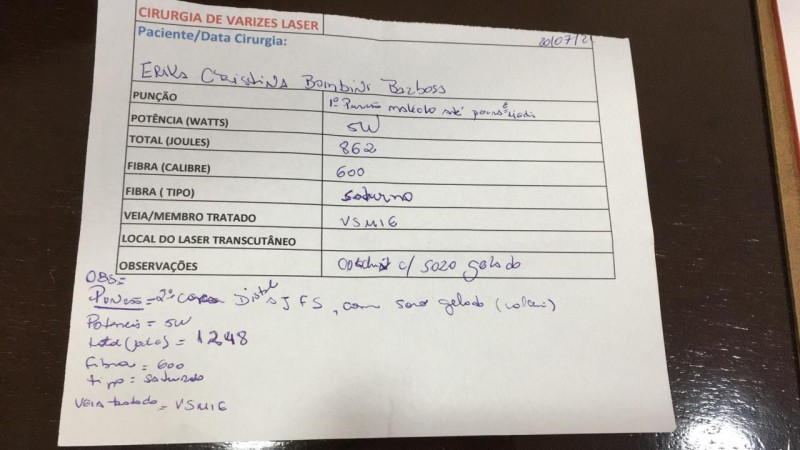 CIRURGIA DE VARIZES LASER
Paciente/Data Cirurgia: 20/07/21
Erika Cristina Bombini Barbosa
PUNÇÃO 1º Punção maléolo até
POTÊNCIA (WATTS) 5W
TOTAL (JOULES) 862
FIBRA (CALIBRE) 600
FIBRA ( TIPO) saturno
VEIA/MEMBRO TRATADO VSMIE
LOCAL DO LASER TRANSCUTÂNEO
OBSERVAÇÕES c/ soro gelado
OBS=
Punção = 2º Distal JFS, com soro gelado
Potencia = 5W
Total (Joules) = 1248
Fibra = 600
tipo: saturno
VEIA tratada = VSMIE